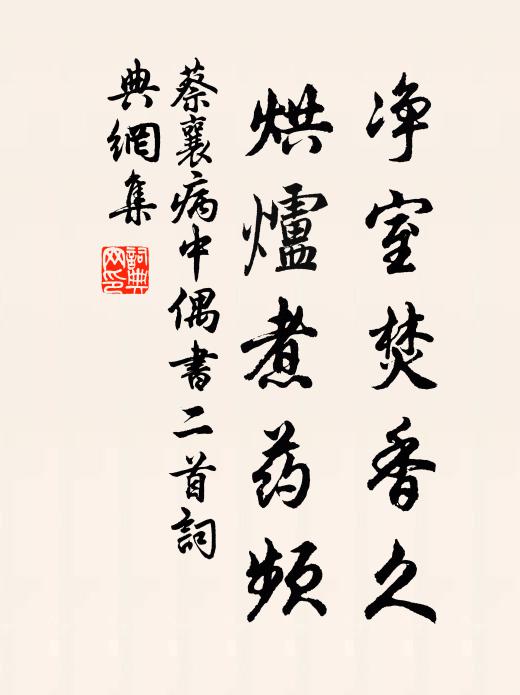 净室焚香久
烘爐煮药頻
蔡襄病中偶書二首詞
典網集
詞典
网印